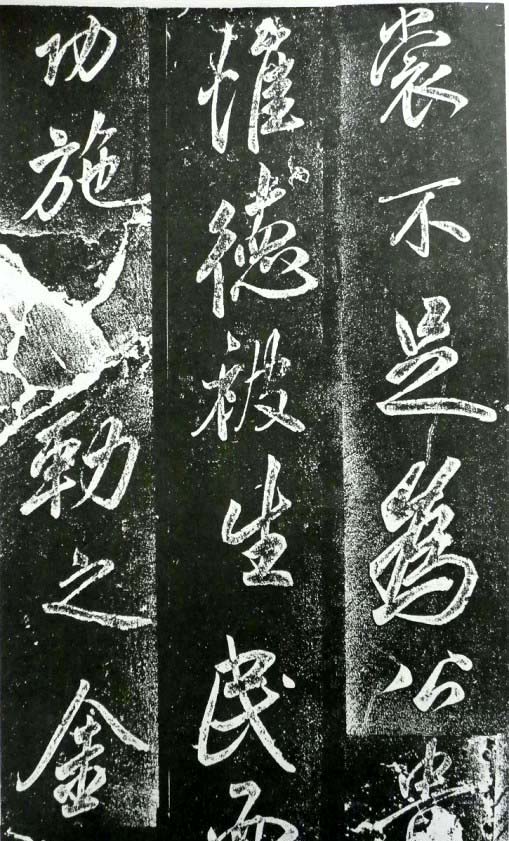 裳不足為公貴
惟德被生民而
功施勒之金